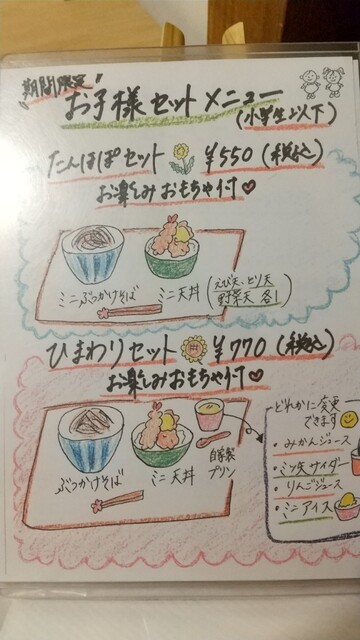 期間限定
お子様セットメニュー
(小学生以下)
たんぽぽセット ¥550(税込)
お楽しみおもちゃ付♥
ミニぶっかけそば
ミニ天丼(えび天、とり天
野菜天 各1)
ひまわりセット ¥770(税込)
お楽しみおもちゃ付♥
ぶっかけそば
ミニ天丼
自家製
プリン
どれかに変更
できます
・みかんジュース
・三ツ矢サイダー
・りんごジュース
・ミニアイス